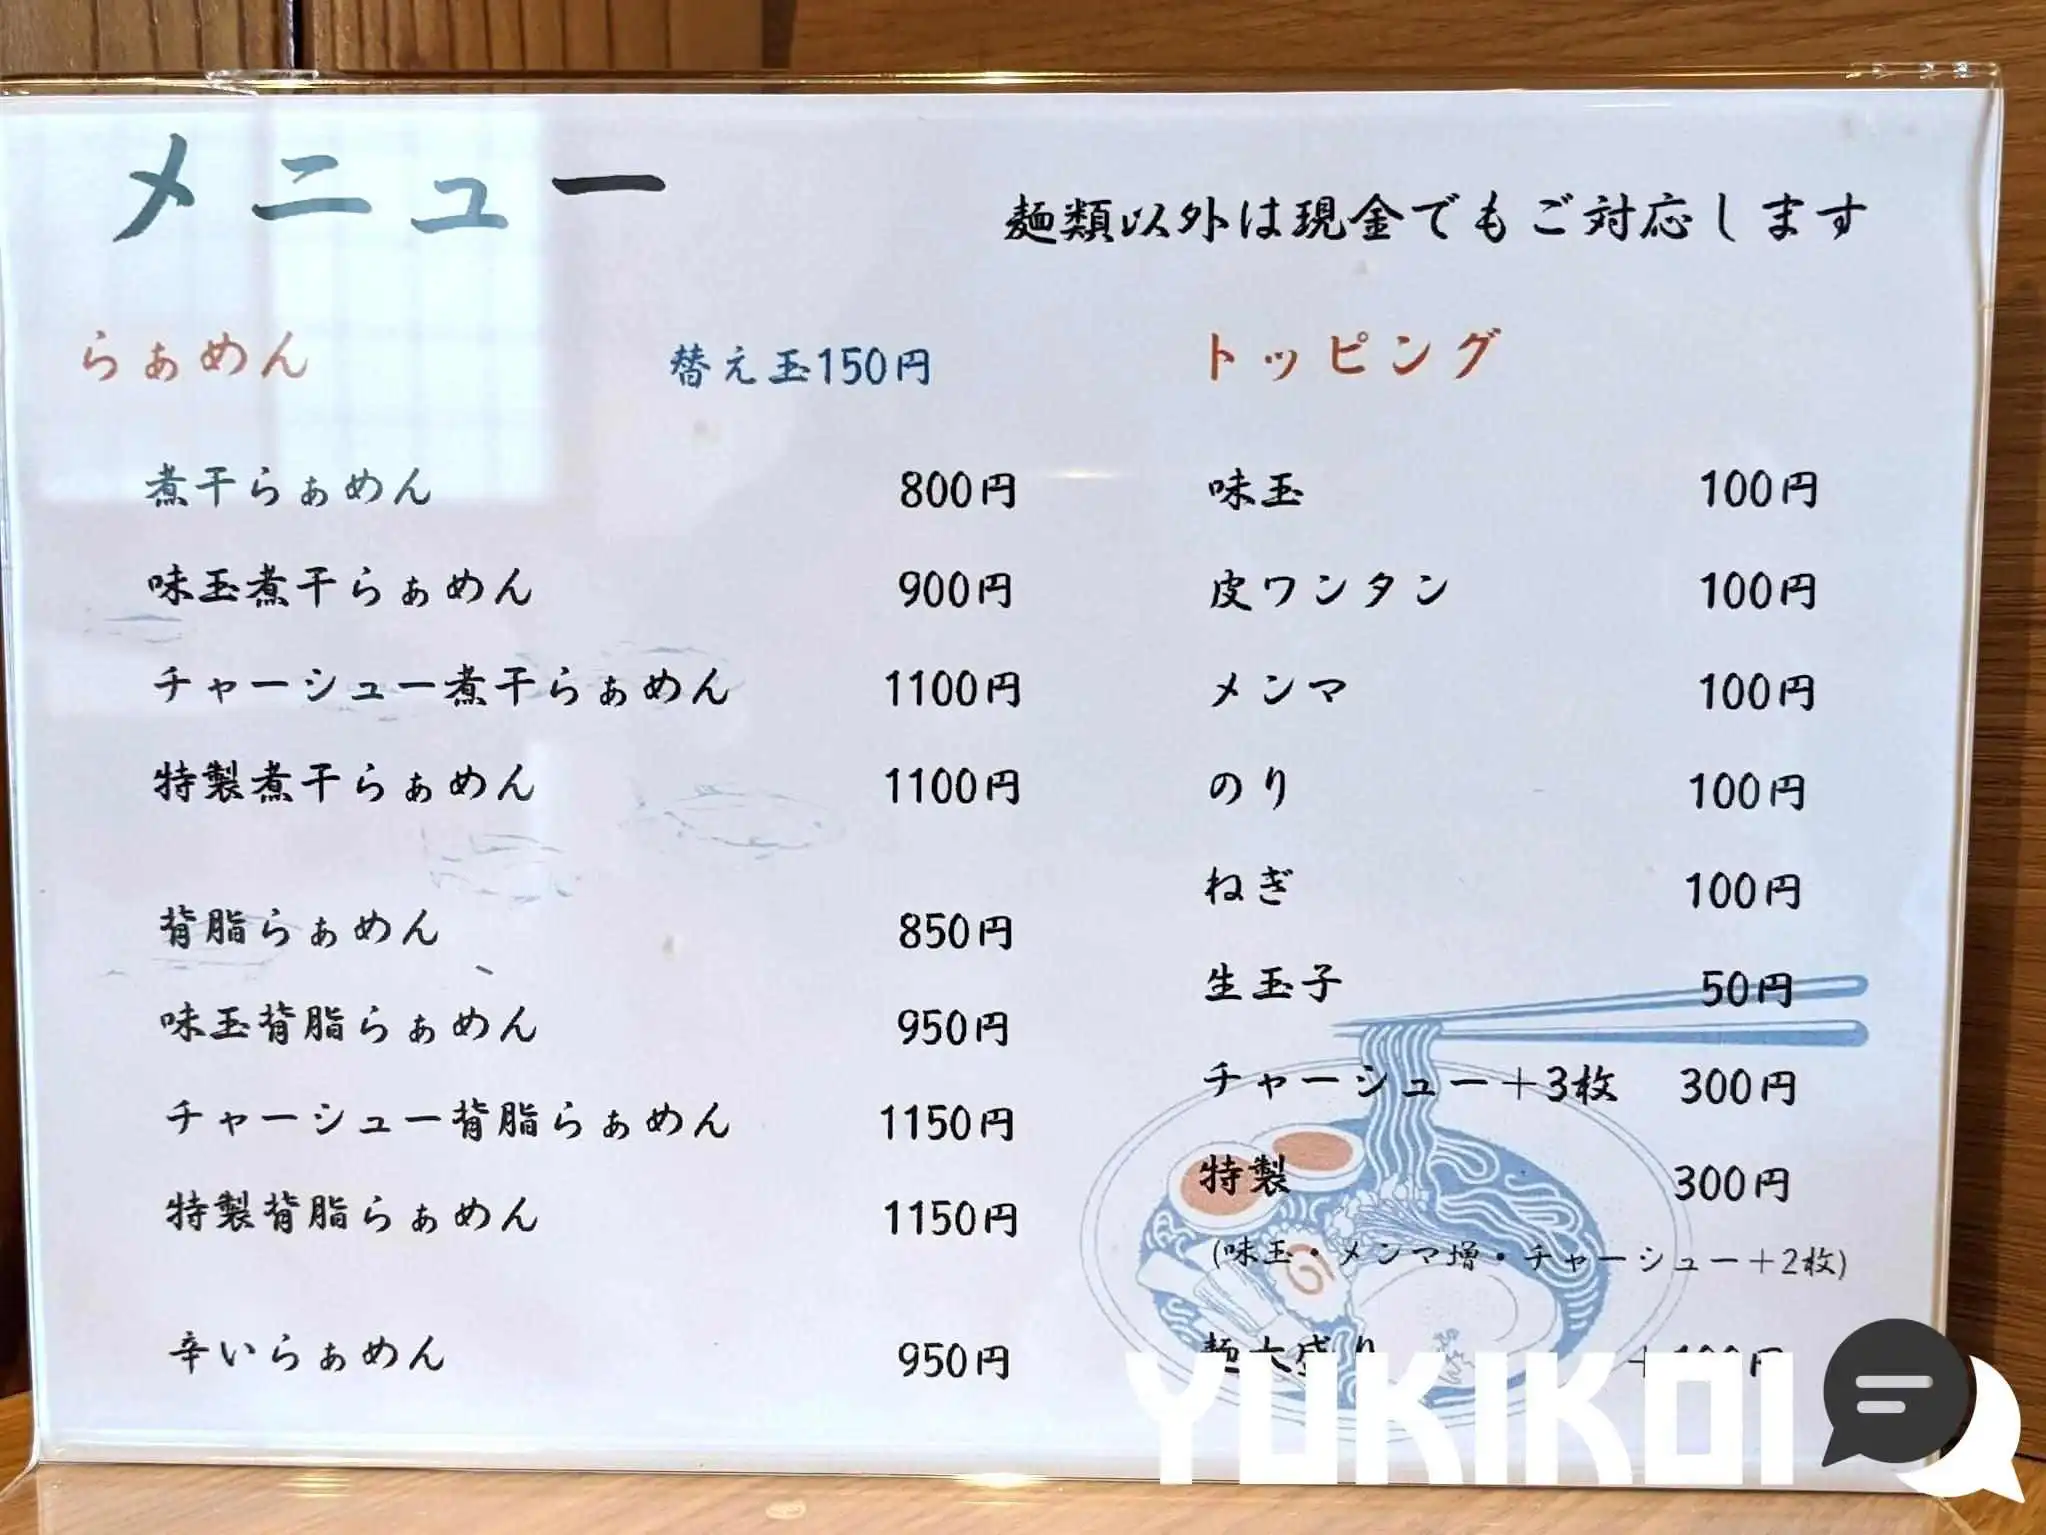 メニュー
麺類以外は現金でもご対応します
らぁめん 替え玉150円
煮干らぁめん 800円
味玉煮干らぁめん 900円
チャーシュー煮干らぁめん 1100円
特製煮干らぁめん 1100円
背脂らぁめん 850円
味玉背脂らぁめん 950円
チャーシュー背脂らぁめん 1150円
特製背脂らぁめん 1150円
辛いらぁめん 950円
トッピング
味玉 100円
皮ワンタン 100円
メンマ 100円
のり 100円
ねぎ 100円
生玉子 50円
チャーシュー+3枚 300円
特製 300円
(味玉・メンマ増・チャーシュー+2枚)
麺大盛り +100円
YUKIKOI